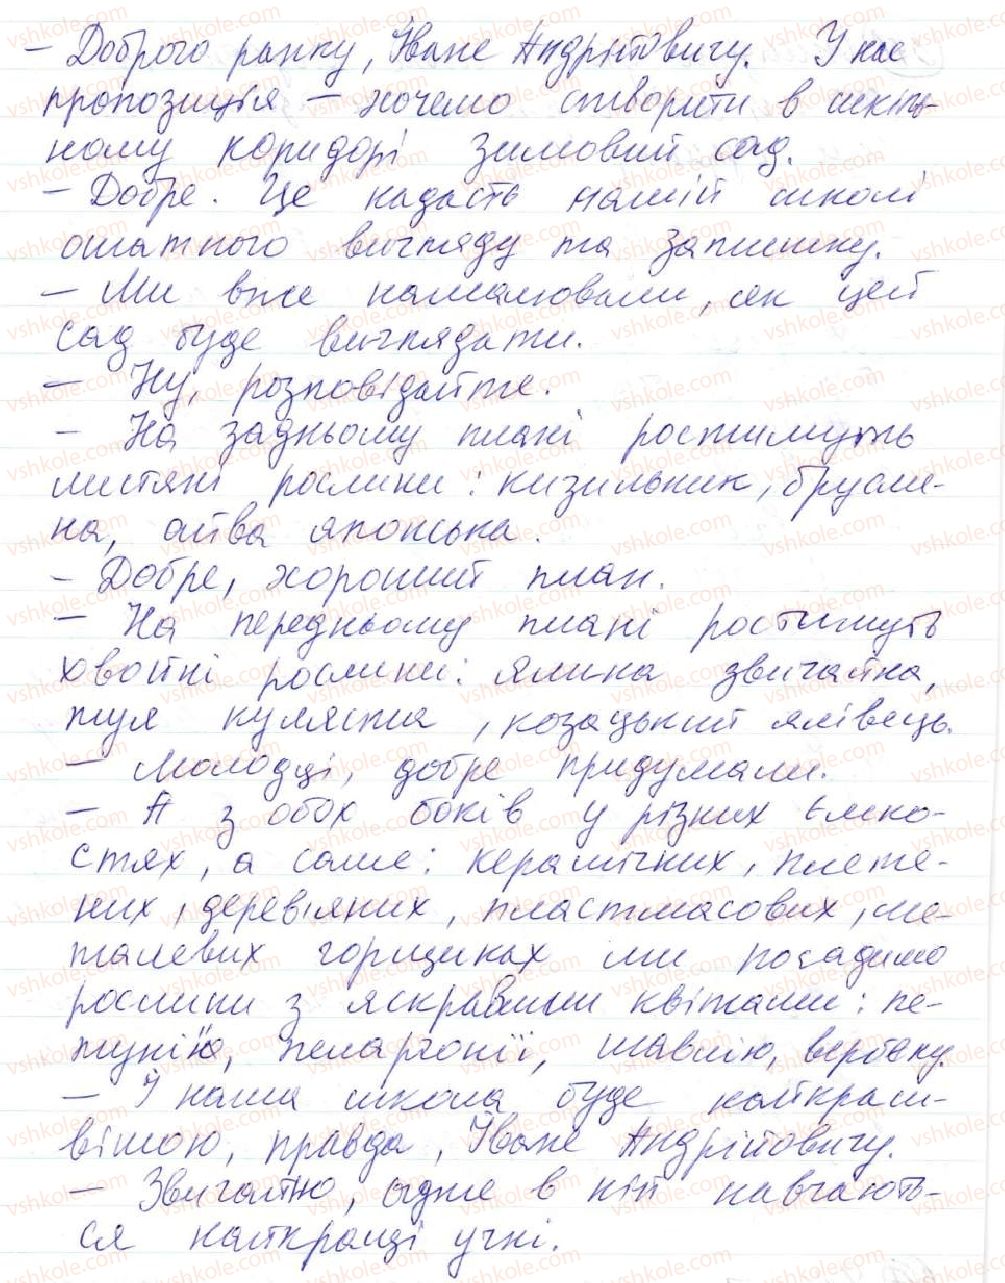 – Доброго ранку, Іване Андрійовичу. У нас
пропозиція – хочемо створити в шкіль-
ному коридорі зимовий сад.
– Добре. Це надасть нашій школі
ошатного вигляду та затишку.
– Ми вже намалювали, як цей
сад буде виглядати.
– Ну, розповідайте.
– На задньому плані ростимуть
листяні рослини: кизильник, брусни-
на, айва японська.
– Добре, хороший план.
– На передньому плані ростимуть
хвойні рослини: ялина звичайна,
туя куляста, козацький ялівець.
– Молодці, добре придумали.
– А з обох боків у різних ємко-
стях, а саме: керамічних, плете-
них, дерев'яних, пластмасових, ме-
талевих горщиках ми посадимо
рослини з яскравими квітами: пе-
тунію, пеларгонії, шавлію, вербену.
– І наша школа буде найкрасі-
вішою, правда, Іване Андрійовичу.
– Звичайно, адже в ній навчають-
ся найкращі учні.